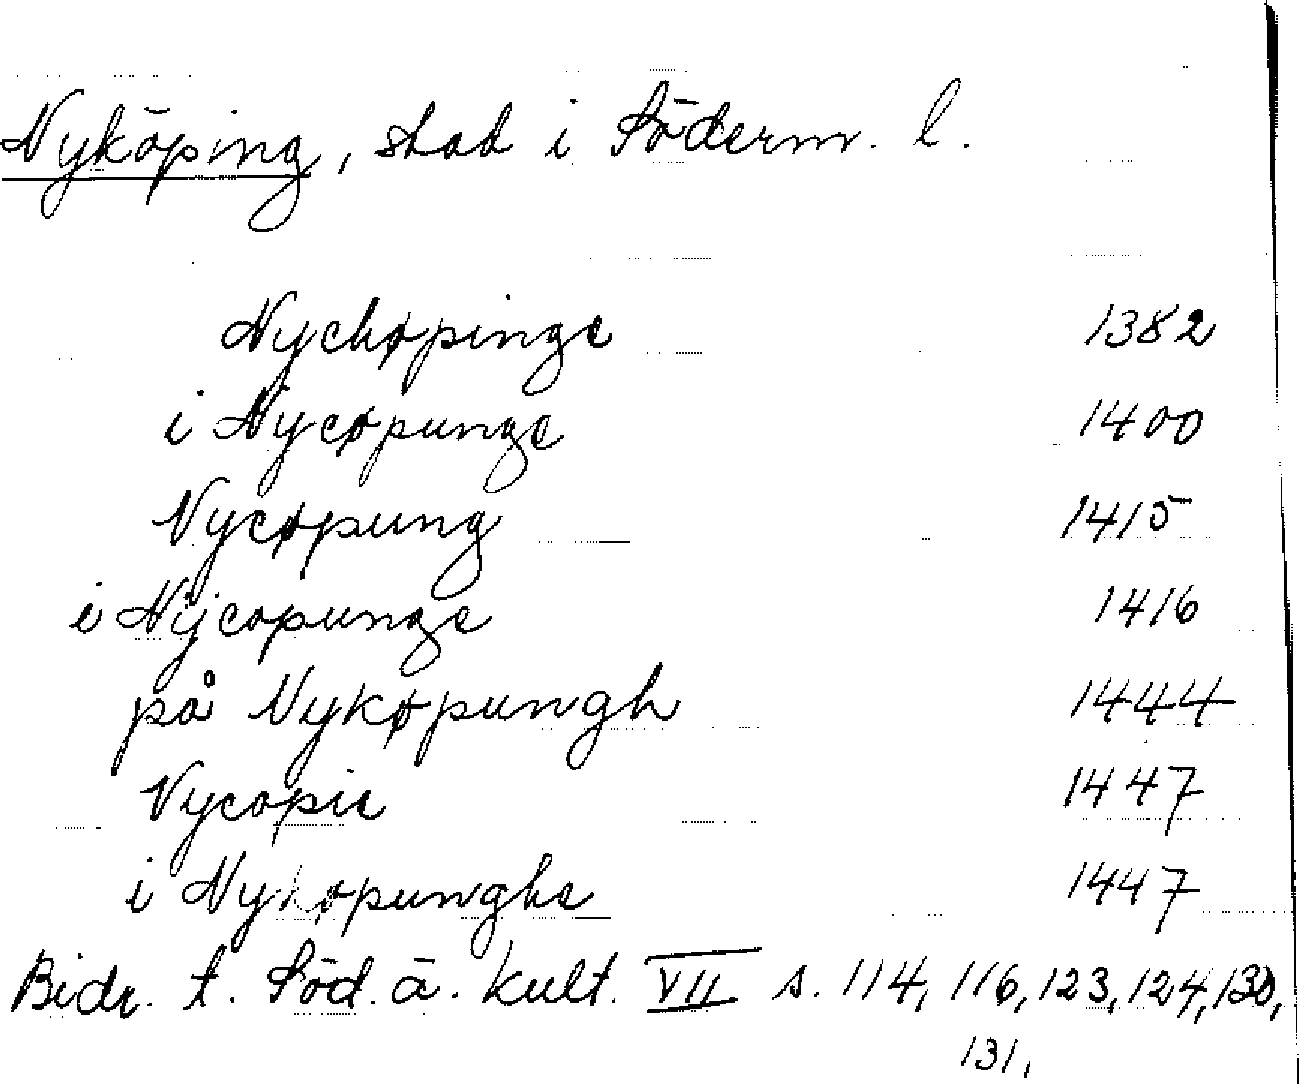 Nyköping, stad i Söderm. l.
Nychøpinge 1382
i Nycøpunge 1400
Nycøpung 1415
i Nÿcopunge 1416
på Nykøpungh 1444
Nycopie 1447
i Nykøpunghe 1447
Bidr. t. Söd. ä. kult. VII s. 114, 116, 123, 124, 130,
131,